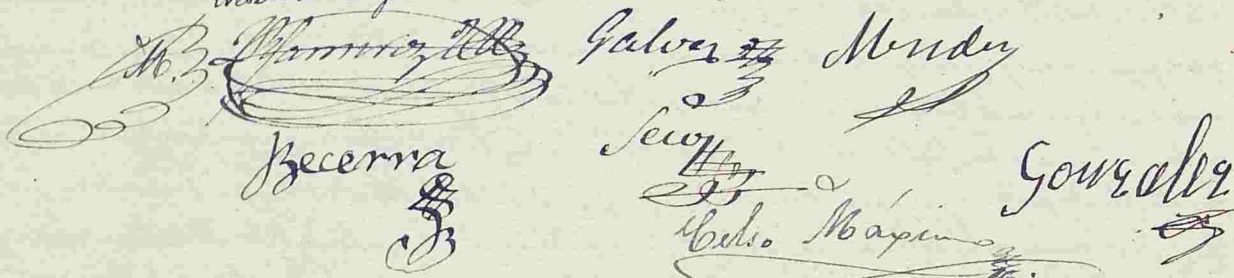 Ramirez Galvez Mendez
Becerra Seco Gonzalez
Celso Máximo